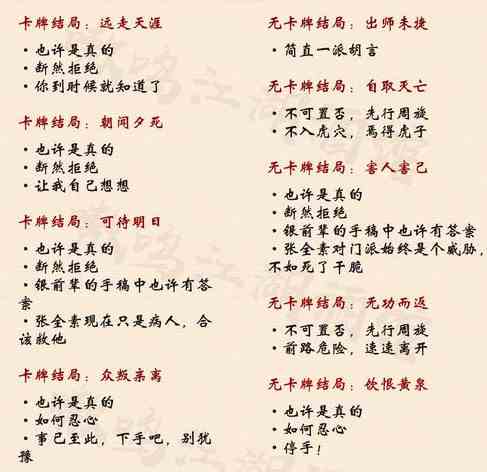 卡牌结局：远走天涯
• 也许是真的
• 断然拒绝
• 你到时候就知道了
卡牌结局：朝闻夕死
• 也许是真的
• 断然拒绝
• 让我自己想想
卡牌结局：可待明日
• 也许是真的
• 断然拒绝
• 银前辈的手稿中也许有答
案
• 张全素现在只是病人，合
该救他
卡牌结局：众叛亲离
• 也许是真的
• 如何忍心
• 事已至此，下手吧，别犹
豫
无卡牌结局：出师未捷
• 简直一派胡言
无卡牌结局：自取灭亡
• 不可置否，先行周旋
• 不入虎穴，焉得虎子
无卡牌结局：害人害己
• 也许是真的
• 断然拒绝
• 银前辈的手稿中也许有答案
• 张全素对门派始终是个威胁，
不如死了干脆
无卡牌结局：无功而返
• 不可置否，先行周旋
• 前路危险，速速离开
无卡牌结局：饮恨黄泉
• 也许是真的
• 如何忍心
• 停手！